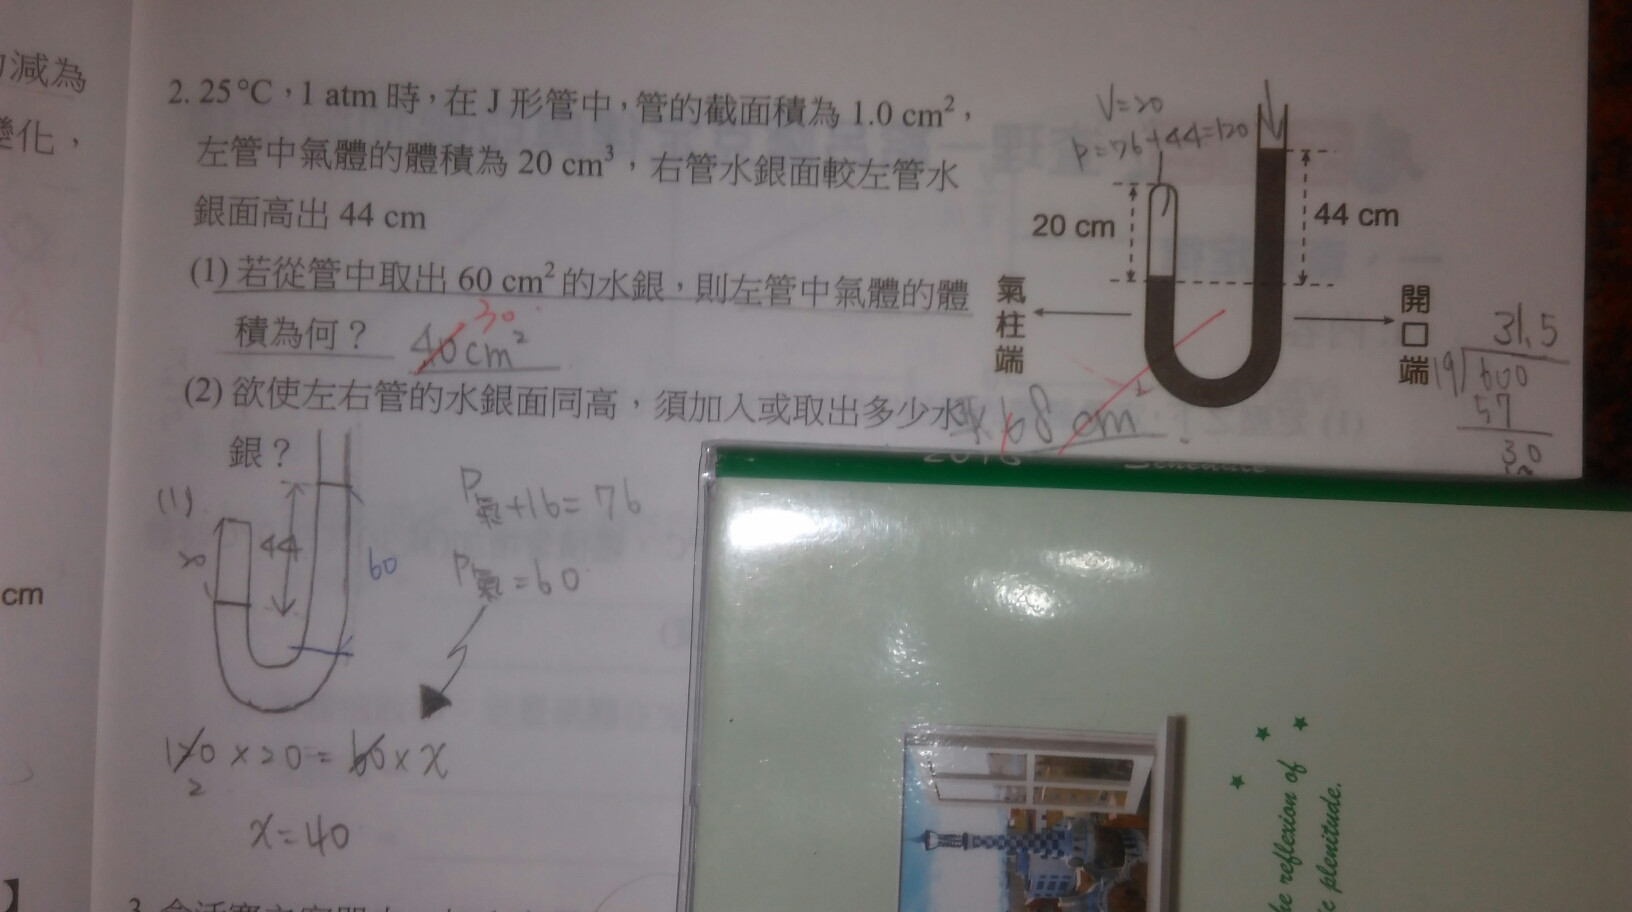 減為
變化，
cm
2. 25°C，1 atm 時，在 J 形管中，管的截面積為 1.0 cm²，
左管中氣體的體積為 20 cm³，右管水銀面較左管水
銀面高出 44 cm
(1) 若從管中取出 60 cm² 的水銀，則左管中氣體的體
積為何？ 40cm² 30
(2) 欲使左右管的水銀面同高，須加入或取出多少水
銀？
68 cm²
V=20
P=76+44=120
20 cm
44 cm
氣柱端
開口端
31.5
19 600
57
30
(1)
20
44
60
P氣+16=76
P氣=60
120×20=60×x
2
x=40
3.
he reflexion of
c plenitude.